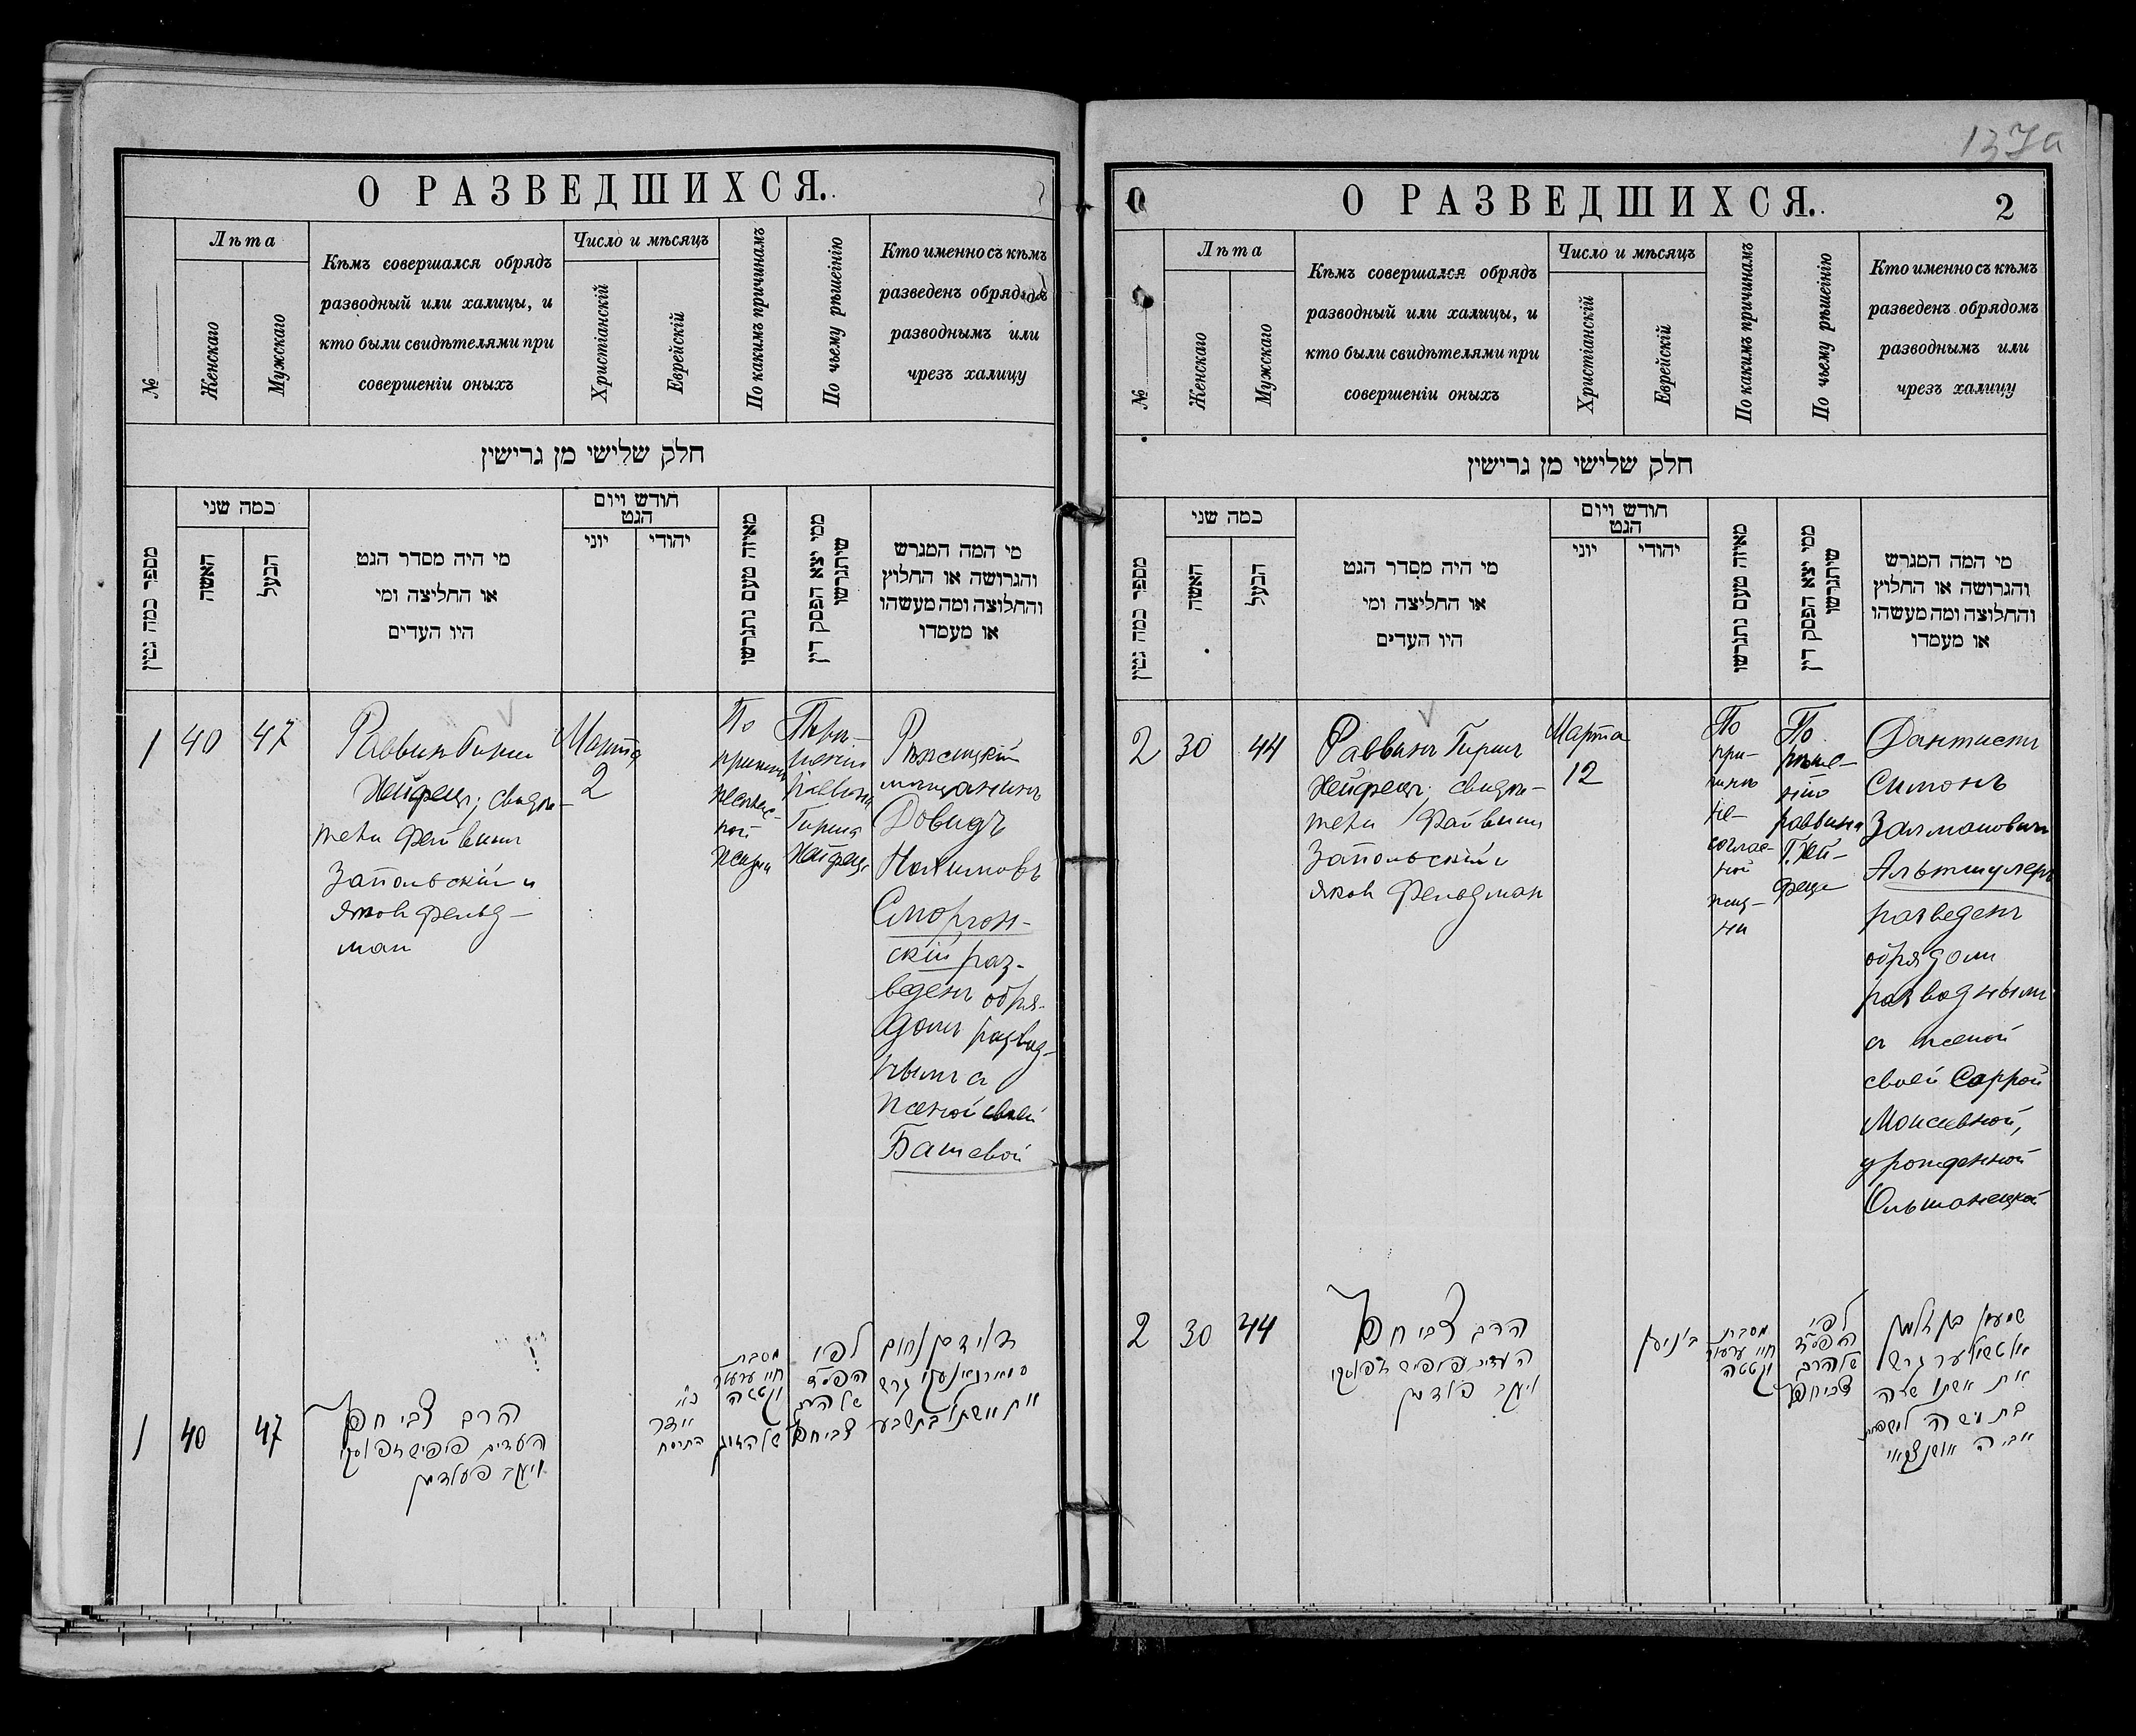 О РАЗВЕДШИХСЯ.
№
Лѣта
Женскаго
Мужскаго
Кѣмъ совершался обрядъ
разводный или халицы, и
кто были свидѣтелями при
совершеніи оныхъ
Число и мѣсяцъ
Христіанскій
Еврейскій
По какимъ причинамъ
По чьему рѣшеінію
Кто именно съ кѣмъ
разведенъ обрядомъ
разводнымъ или
чрезъ халицу
חלק שלישי מן גרישין
מספר כמה גטין
כמה שני
האשה
הבעל
מי היה מסדר הגט
או החליצה ומי
היו העדים
חודש ויום
הגט
יוני
יהודי
מאיזה טעם נתגרשו
ממי יצא הפסק דין
שיתגרשו
מי המה המגרש
והגרושה או החלוץ
והחלוצה ומה מעשהו
או מעמדו
1
40
47
Раввин Гирш
Хейфец; свидѣ-
тели Файвиш
Запольскій и
Яков Фельд-
ман
Марта
2
По
причинѣ
несоглас-
ной
жизни
По рѣ-
шенію
раввина
Гирша
Хейфеца
Рѣжицкій
мѣщанинъ
Довидъ
Нохимовъ
Сморгон-
скій раз-
веденъ обря-
домъ развод-
нымъ съ
женой своей
Башевой
1
40
47
הרב צבי חפץ
העדים פייוויש זאפאלסקי
ויעקב פעלדמן
כ"א
אדר
התרסח
מסבת
חיי ערעור
וקטטה
של הזוג
לפי
הפס"ד
של הרב
צבי חפץ
דוד בן נחום
סמארגאנסקי גרש
את אשתו בתשבע
137а
О РАЗВЕДШИХСЯ.
2
№
Лѣта
Женскаго
Мужскаго
Кѣмъ совершался обрядъ
разводный или халицы, и
кто были свидѣтелями при
совершеніи оныхъ
Число и мѣсяцъ
Христіанскій
Еврейскій
По какимъ причинамъ
По чьему рѣшеінію
Кто именно съ кѣмъ
разведенъ обрядомъ
разводнымъ или
чрезъ халицу
חלק שלישי מן גרישין
מספר כמה גטין
כמה שני
האשה
הבעל
מי היה מסדר הגט
או החליצה ומי
היו העדים
חודש ויום
הגט
יוני
יהודי
מאיזה טעם נתגרשו
ממי יצא הפסק דין
שיתגרשו
מי המה המגרש
והגרושה או החלוץ
והחלוצה ומה מעשהו
או מעמדו
2
30
44
Раввинъ Гирш
Хейфецъ; свидѣ-
тели Файвиш
Запольскій и
Яков Фельдман
Марта
12
По
при-
чинѣ
не-
соглас-
ной
жиз-
ни
По
рѣше-
нію
раввина
Г. Хей-
феца
Дантистъ
Симонъ
Залмановичъ
Альтшулеръ
разведенъ
обрядомъ
разводнымъ
съ женой
своей Саррой
Моисеевной,
урожденной
Ольшанецкой
2
30
44
הרב צבי חפץ
העדים פייוויש זאפאלסקי
ויעקב פעלדמן
ב' ניסן
מסבת
חיי ערעור
וקטטה
לפי
הפס"ד
של הרב
צבי חפץ
שמעון בן זלמן
אלטשולער גרש
את אשתו שרה
בת משה לשם
אביה